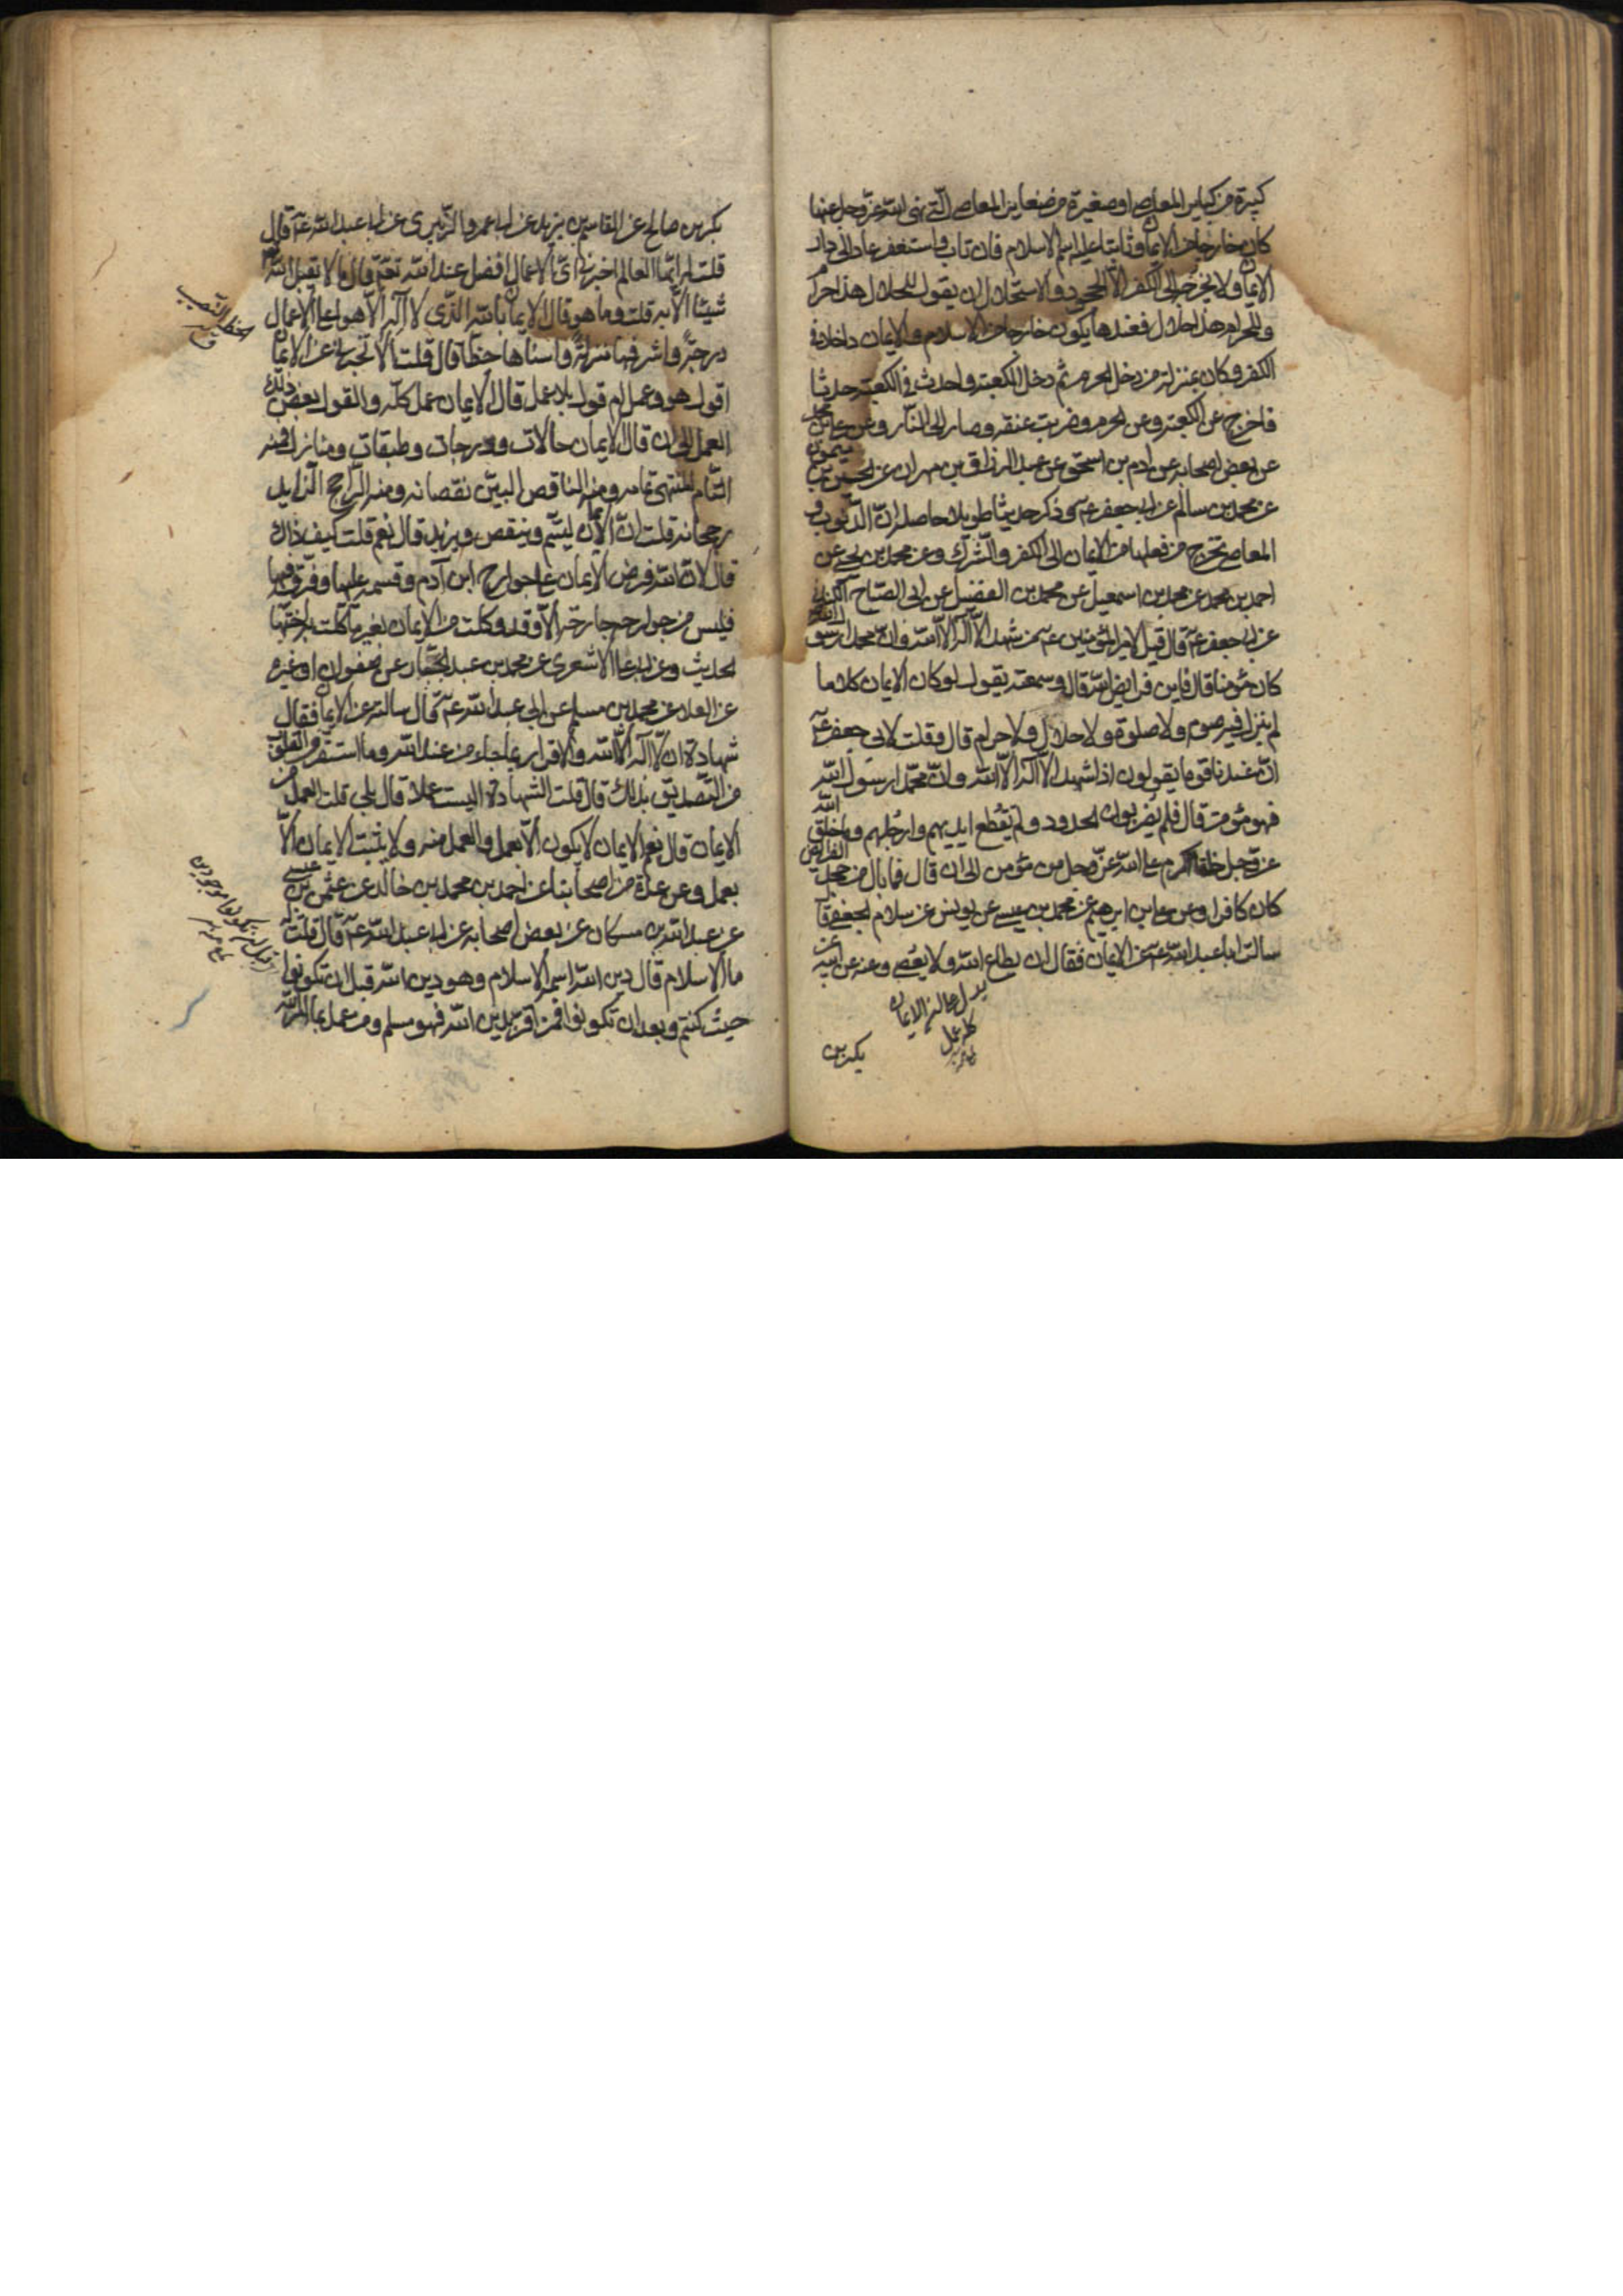 كبيرة من كباير المعاصي او صغيرة من صغاير المعاصي التي نهى الله عز وجل عنها
كان خارجا من الايمان وثابتا عليه اسم الاسلام فان تاب واستغفر عاد الى دار
الايمان ولا يخرجه الى الكفر الا الجحود والاستحلال ان يقول للحلال هذا حرام
وللحرام هذا حلال فعندها يكون خارجا من الاسلام والايمان داخلا في
الكفر وكان بمنزلة من دخل الحرم ثم دخل الكعبة واحدث في الكعبة حدثا
فاخرج عن الكعبة وعن الحرم وضربت عنقه وصار الى النار وعن علي بن محمد
عن بعض اصحابه عن ادم بن اسحق عن عبد الرزاق بن مهران عن الحسين بن ميمون
عن محمد بن سالم عن ابي جعفر ع وذكر حديثا طويلا حاصله ان الذنوب و
المعاصي تخرج من فعلها من الايمان الى الكفر والشرك وعن محمد بن يحيى عن
احمد بن محمد عن محمد بن اسمعيل عن محمد بن الفضيل عن ابي الصباح الكناني
عن ابي جعفر ع قال قيل لامير المؤمنين ع من شهد الا اله الا الله وان محمدا رسول الله
كان مؤمنا قال فاين فرايض الله قال وسمعته يقول لو كان الايمان كلاما
لم ينزل فيه صوم ولا صلوة ولا حلال ولا حرام قال وقلت لابي جعفر ع
ان عندنا قوما يقولون اذا شهد الا اله الا الله وان محمدا رسول الله
فهو مؤمن قال فلم يضربوان الحدود ولم تقطع ايديهم وارجلهم وما خلق الله
عز وجل خلقا اكرم على الله عز وجل من مؤمن الى ان قال فما بال من جحد الفرايض
كان كافرا وعن علي بن ابرهيم عن محمد بن عيسى عن يونس عن سلام الجعفي قال
سالت ابا عبد الله ع عن الايمان فقال ان يطاع الله ولا يعصى وعنه عن ابيه عن
يدل على ان الايمان
كله عمل
بكر بن
بكر بن صالح عن القاسم بن يزيد عن ابي عمرو الزبيري عن ابي عبد الله ع قال
قلت له ايها العالم اخبرني اي الاعمال افضل عند الله تع قال ما لا يقبل الله
شيئا الا به قلت وما هو قال الايمان بالله الذي لا اله الا هو اعلى الاعمال
درجة واشرفها منزلة واسناها حظا قال قلت الا تخبرني عن الايمان
اقول هو وعمل ام قول بلا عمل قال الايمان عمل كله والقول بعض ذلك
العمل الى ان قال الايمان حالات ودرجات وطبقات ومنازل فمنه
التام المنتهى تمامه ومنه الناقص البين نقصانه ومنه الراجح الزايد
رجحانه قلت ان الايمان ليتم وينقص ويزيد قال نعم قلت كيف ذاك
قال لان الله فرض الايمان على جوارح ابن آدم وقسمه عليها وفرقه فيها
فليس من جوارحه جارحة الا وقد وكلت من الايمان بغير ما وكلت به اختها
الحديث وعن ابي علي الاشعري عن محمد بن عبد الجبار عن صفوان او غيره
عن العلا عن محمد بن مسلم عن ابي عبد الله ع قال سالته عن الايمان فقال
شهادة ان لا اله الا الله والاقرار بما جاء من عند الله وما استقر في القلوب
من التصديق بذلك قال قلت الشهادة اليست عملا قال بلى قلت العمل من
الايمان قال نعم الايمان لا يكون الا بعمل والعمل منه ولا يثبت الايمان الا
بعمل وعن عدة من اصحابنا عن احمد بن محمد بن خالد عن عثمن بن عيسى
عن عبد الله بن مسكان عن بعض اصحابه عن ابي عبد الله ع قال قلت له
ما الاسلام قال دين الله اسمه الاسلام وهو دين الله قبل ان تكونوا
حيث كنتم وبعد ان تكونوا فمن اقر بدين الله فهو مسلم ومن عمل بما امر الله
الحظ النصيب
اي قبل ان تكونوا موجودين